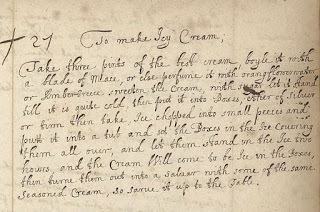 27 To make Icy Cream,
Take three pints of the best cream, boyle it with
a blade of Mace, or else perfume it with orang flower water
or Amber-Greece, sweeten the Cream, with sugar let it stand
till it is quite cold, then put it into Boxes, either of Silver
or tinn then take, Ice chopped into small peeces and
putt it into a tub and set the Boxes in the Ice covering
them all over, and let them stand in the Ice two
hours, and the Cream Will come to be Ice in the Boxes,
then turne them out into a salvar with some of the same
Seasoned Cream, so sarve it up to the Table.